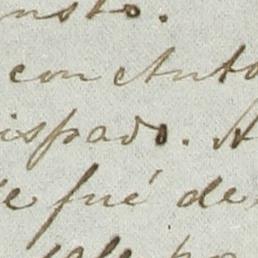 nsto.
con Anto
ispado. A
e fué de